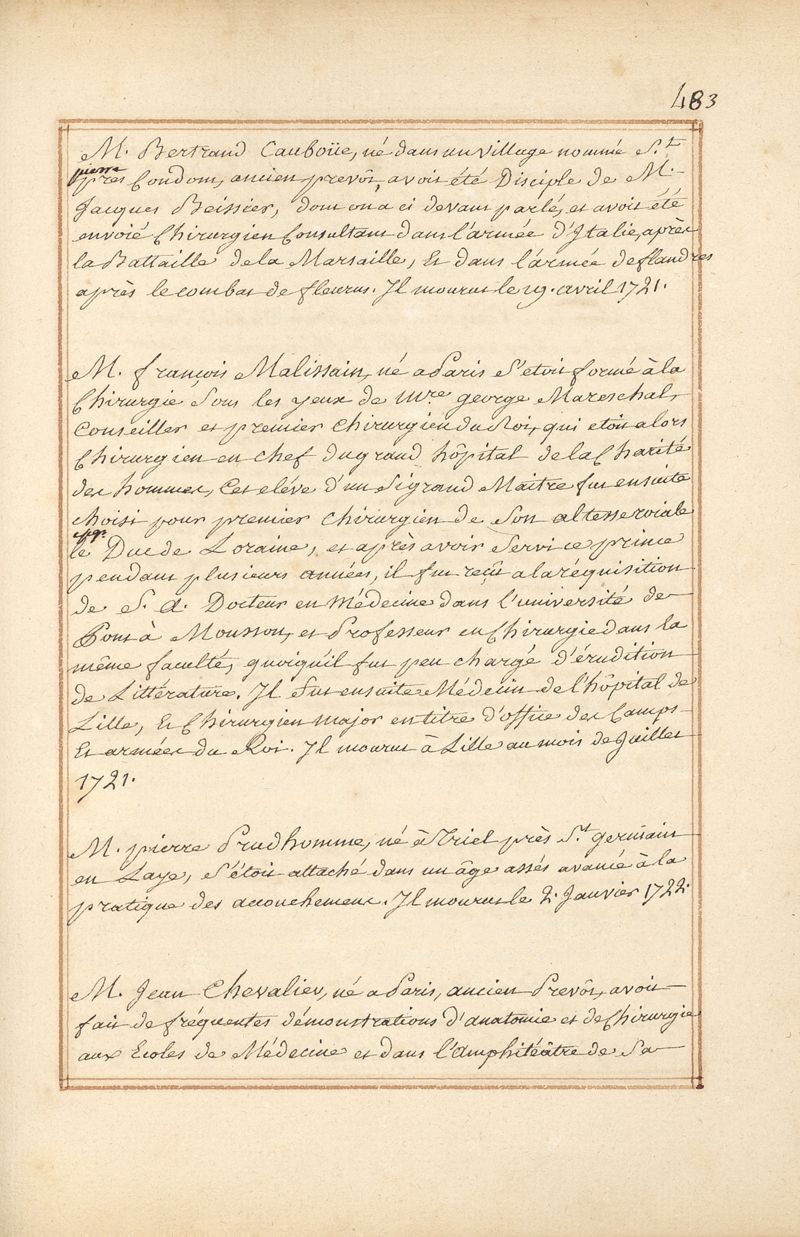 483
M. Bertrand Cauboüe, né dans un village nommé S.t
pierre
près Condom, ancien prevôt, avoit été Disciple de M.
Jacques Beissier, dont on a ci devant parlé, et avoit été
envoié Chirurgien Consultant dans l'armée d'Italie, après
la Battaille de la Marsaille, Et dans l'armée de flandres
après le combat de fleurus. Il mourut le 19. avril 1721.
M. françois Malissain, né a Paris s'etoit formé à la
Chirurgie sous les yeux de Mre george Mareschal,
Conseiller et premier Chirurgien du Roi, qui etoit alors
Chirurgien en chef du grand hôpital de la Charité
des hommes, Cet eléve d'un si grand Maitre fut ensuite
choisi pour premier chirurgien de son altesse roiale
le Duc de Loraine, et après avoir servi ce prince
pendant plusieurs années, il fut reçû a la réquisition
de S. A. Docteur en Médecine dans l'université de
Pont à Mousson, et Professeur en Chirurgie dans la
même faculté, quoiqu'il fut peu chargé d'érudition
de Littérature. Il fut ensuite Médecin de l'hôpital de
Lille, Et Chirurgien major en titre d'office des Camps
Et armées du Roi. Il mourut à Lille au mois de Juillet
1721.
M. pierre Prudhomme, né à Triel près S.t germain
en Laye, s'étoit attaché dans un âge assés avancé à la
pratique des accouchemens. Il mourut le 2. Janvier 1722.
M. Jean Chevalier, né a Paris, ancien Prevôt, avoit
fait de fréquentes démonstrations d'anatomie et de Chirurgie
aux Ecoles de Médecine et dans l'amphitéâtre de Sa